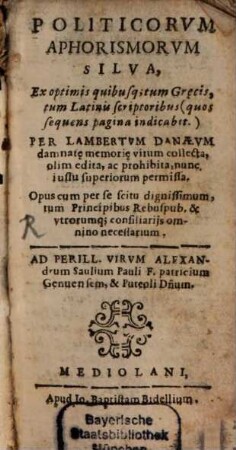 POLITICORVM
APHORISMORVM
SILVA,
Ex optimis quibusq; tum Gręcis,
tum Latinis scriptoribus (quos
sequens pagina indicabit.)
PER LAMBERTVM DANÆVM
damnatę memorię virum collecta,
olim edita, ac prohibita, nunc
iussu superiorum permissa.
Opus cum per se scitu dignissimum,
tum Principibus Rebuspub. &
vtrorumq; consiliarijs om-
nino necessarium.
R
AD PERILL. VIRVM ALEXAN-
drum Saulium Pauli F. patricium
Genuensem, & Puteoli Dñum.
MEDIOLANI,
Apud Io. Baptistam Bidellium.
Bayerische
Staatsbibliothek
München